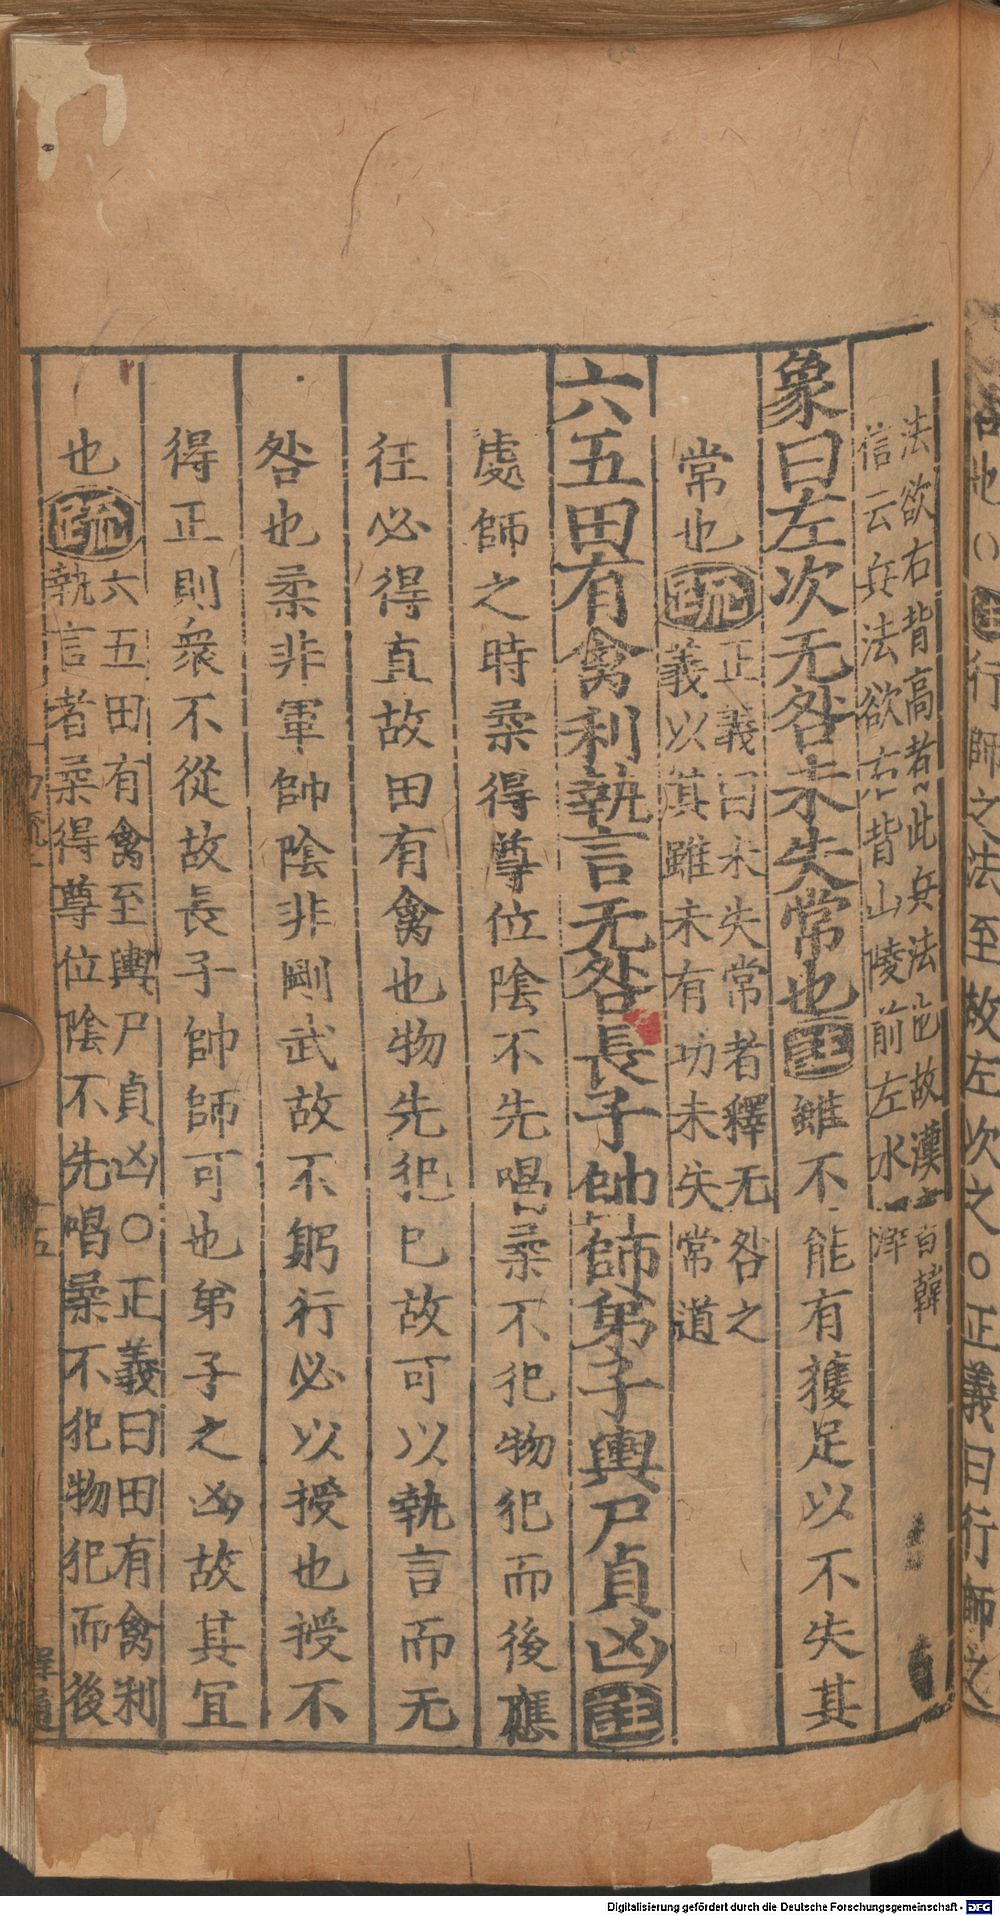 行師之法至故左次之○正義曰行師之
法欲右背高者此兵法也故漢書韓
信云兵法欲右背山陵前左水澤
象曰左次无咎未失常也註雖不能有獲足以不失其
常也疏正義曰未失常者釋无咎之
義以其雖未有功未失常道
六五田有禽利執言无咎長子帥師弟子輿尸貞凶註
處師之時柔得尊位陰不先唱柔不犯物犯而後應
往必得直故田有禽也物先犯已故可以執言而无
咎也柔非軍帥陰非剛武故不躬行必以授也授不
得正則衆不從故長子帥師可也弟子之凶故其宜
也疏六五田有禽至輿尸貞凶○正義曰田有禽利
執言者柔得尊位陰不先唱柔不犯物犯而後
Digitalisierung gefördert durch die Deutsche Forschungsgemeinschaft - DFG